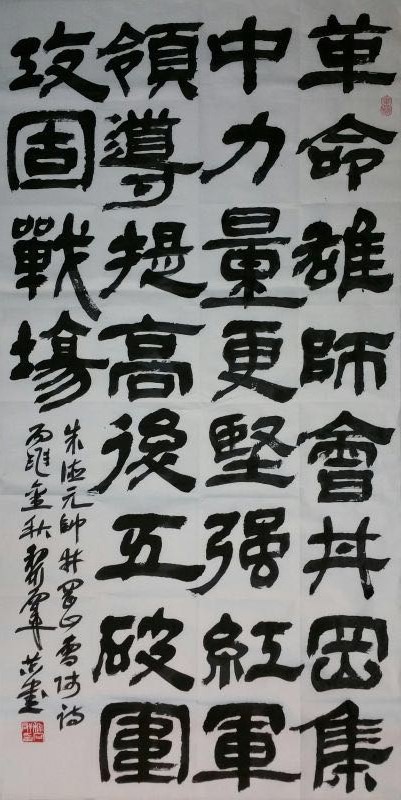 革命雄師會井岡集
中力量更堅强紅軍
領導提高後五破圍
攻固戰場
朱德元帥井岡山會師詩
丙金秋書